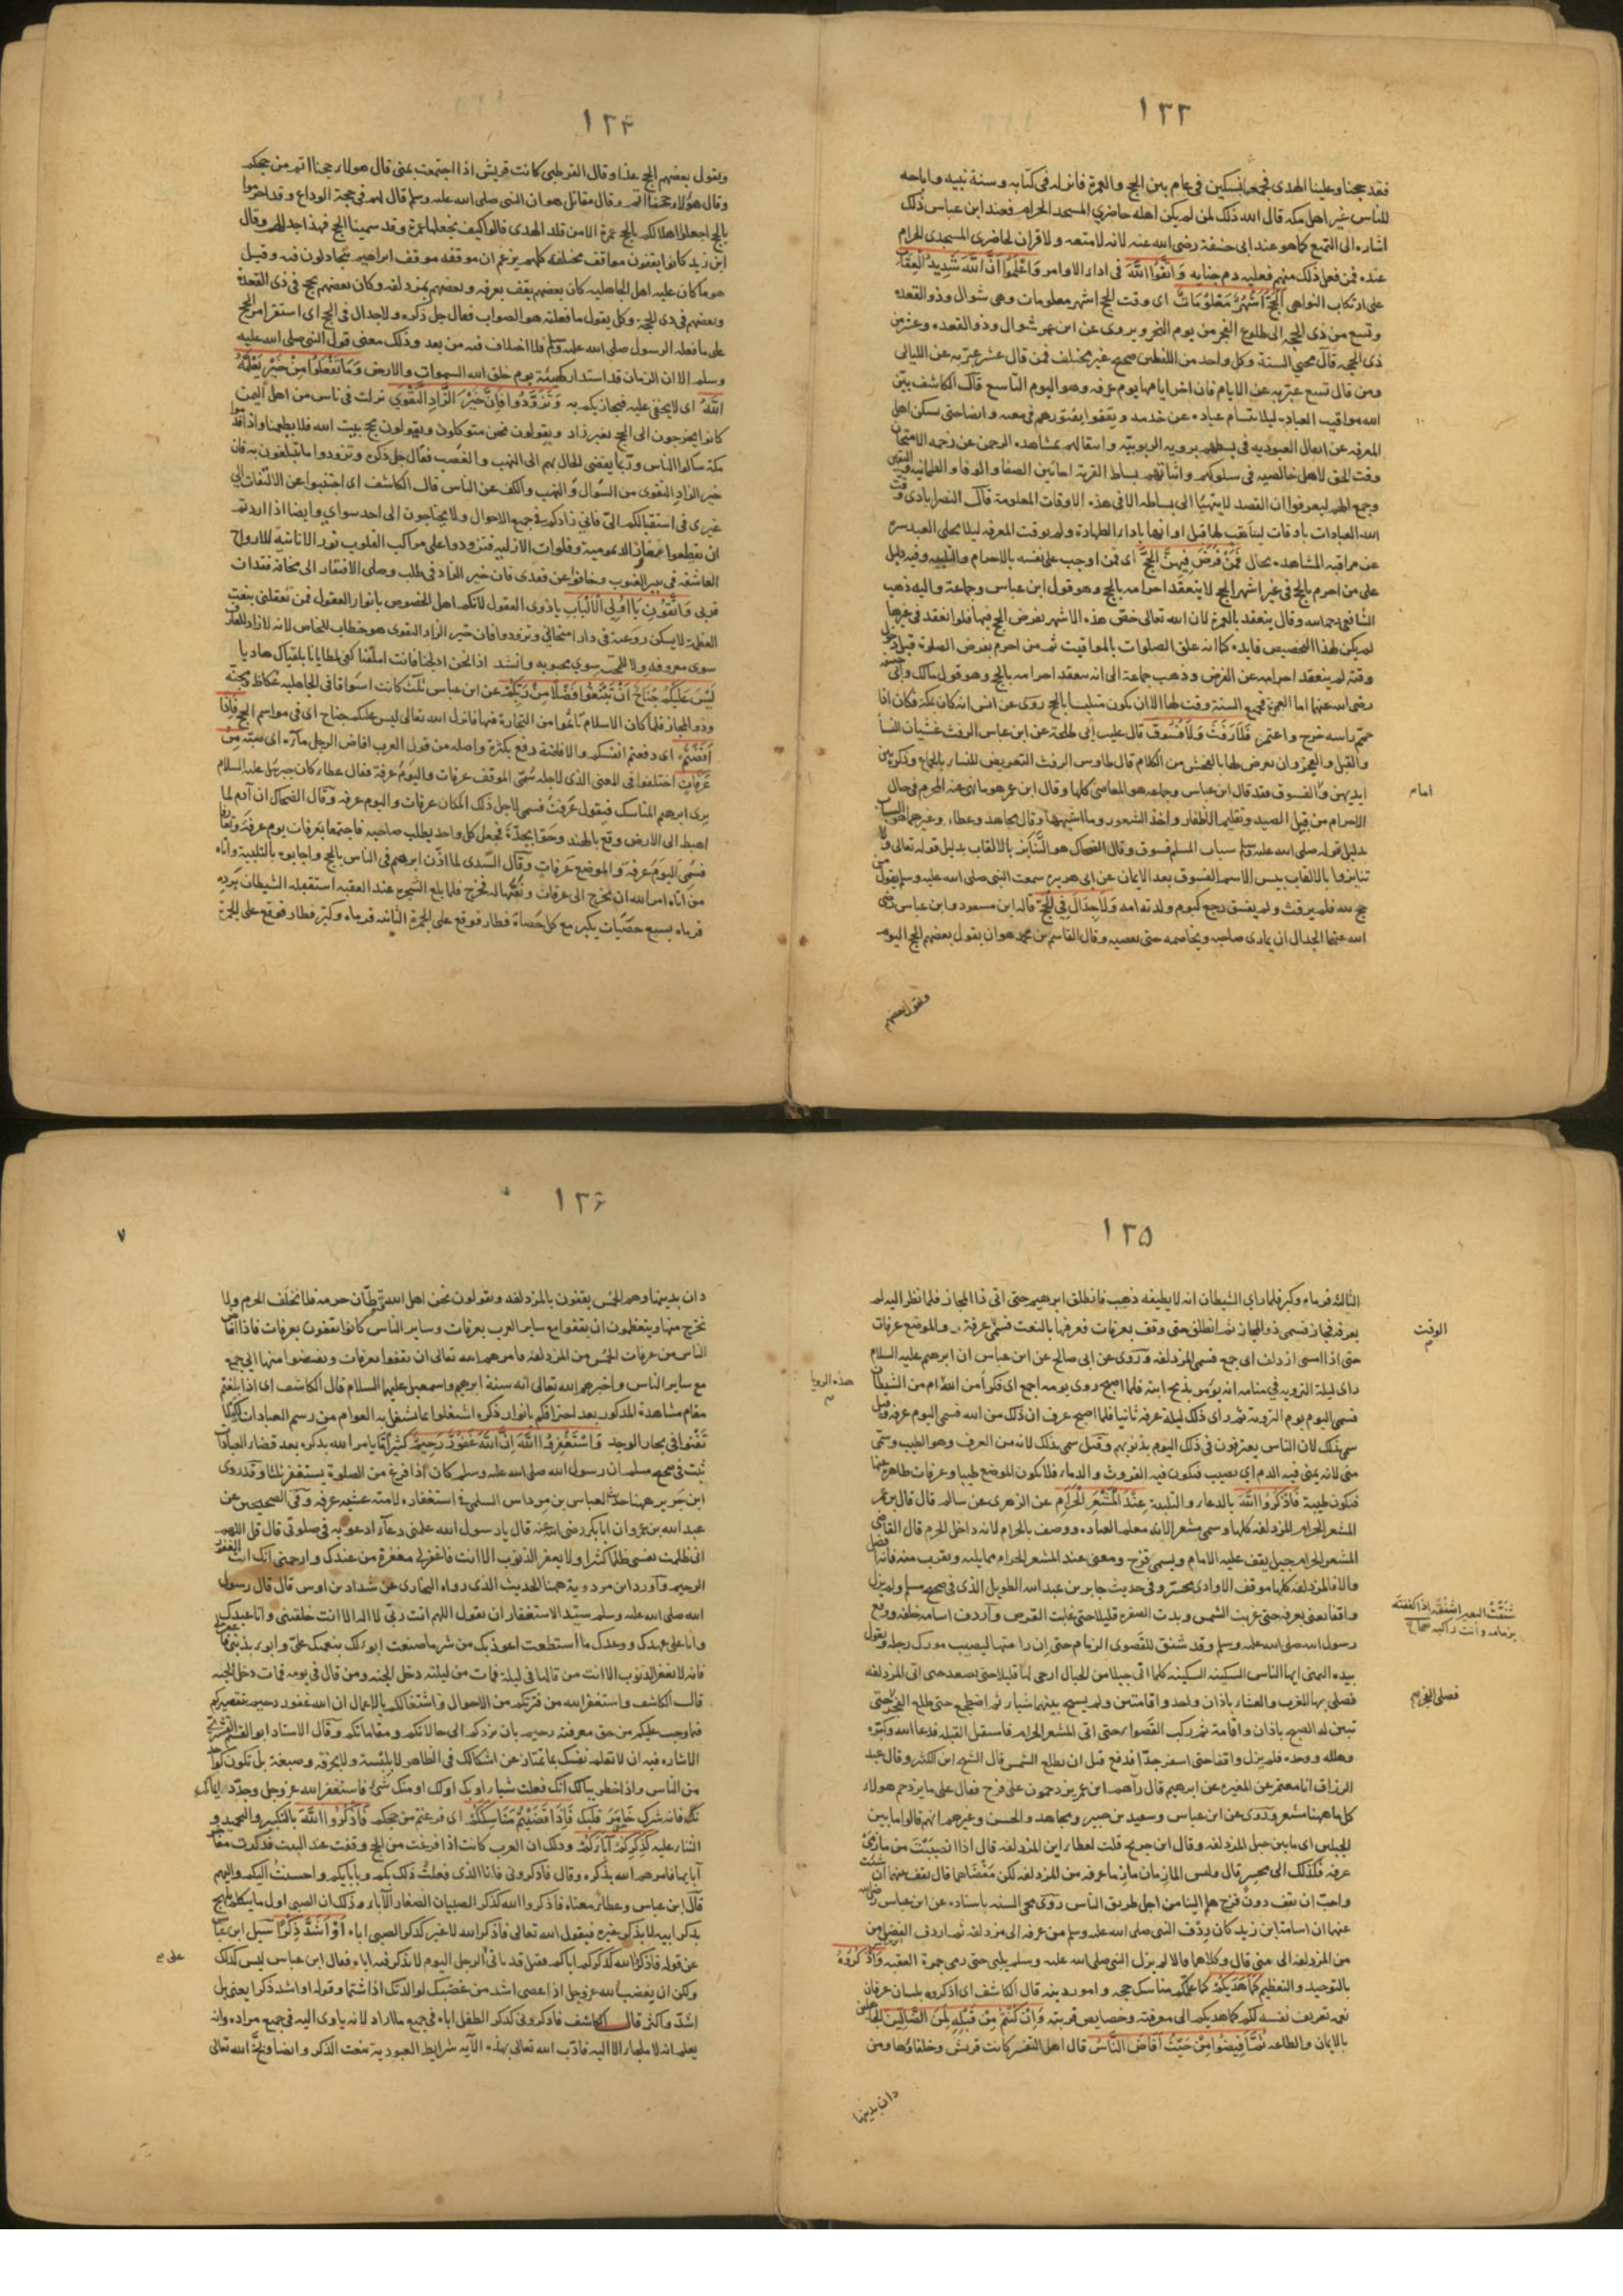 ١٢٣
فقد حججنا وعلينا الهدى فجمعوا نسكين في عام بين الحج والعمرة فانزله في كتابه وسنة نبيه واباحه
للناس غير اهل مكه قال الله ذلك لمن لم يكن اهله حاضري المسجد الحرام فعند ابن عباس ذلك
اشاره الى التمتع كما هو عند ابى حنيفة رضى الله عنه لانه لا متعه ولا قران لحاضرى المسجدى الحرام
عنده فمن فعل ذلك منهم فعليه دم جنايه وَاتَّقُوا اللَّهَ فى اداء الاوامر وَاعْلَمُوا أَنَّ اللَّهَ شَدِيدُ الْعِقَابِ
على ارتكاب النواهى اَلْحَجُّ أَشْهُرٌ مَعْلُومَاتٌ اى وقت الحج اشهر معلومات وهى شوال وذو القعده
وتسع من ذى الحجه الى طلوع الفجر من يوم النحر ويروى عن ابن عمر شوال وذو القعده وعشر من
ذى الحجه قال محيى السنة وكل واحد من اللفظين صحيح غير مختلف فمن قال عشر عبّر به عن الليالى
ومن قال تسع عبّر به عن الايام فان اخر ايامها يوم عرفه وهو اليوم التاسع قال الكاشف بيّن
الله مواقيت العباد ليلا يسام عباده عن خدمه ويقفوا
المعرفه عن اثقال العبوديه فى بسطهم برويه الربوبيّه واستقالهم بمشاهده الرحمن عن زحمه الامتحان
وقت الحق لاهل خالصيه فى سلوكهم واتيانهم بساط القربة احايين الصفا والوفا والطمانيه واليقين
وجمع الهم ليعرفوا ان القصد لا يتهيّا الى بساطه الا فى هذه الاوقات المعلومة قال النصرابادى وقت
الله العبادات باوقات ليتأهب لها قبل اوانها باداء الطهارة ولم يوقت المعرفه ليلا يخلى العبد سره
عن مراقبه المشاهده بحال فَمَنْ فَرَضَ فِيهِنَّ الْحَجَّ اى فمن اوجب على نفسه بالاحرام والتلبيه وفيه دليل
على من احرم بالحج فى غير اشهر الحج لا ينعقد احرامه بالحج وهو قول ابن عباس وجماعة واليه ذهب
الشافعى رحمه الله وقال ينعقد بالعمرة لان الله تعالى خصّ هذه الاشهر بفرض الحج فيها فلو انعقد فى غيرها
لم يكن لهذا التخصيص فايده كما انه علق الصلوات بالمواقيت ثم من احرم بفرض الصلوة قبل دخول
وقته لم ينعقد احرامه عن الفرض وذهب جماعة الى انه ينعقد احرامه بالحج وهو قول مالك وابى حنيفه
رضى الله عنهما اما العمرة فجميع السنة وقت لها الا ان يكون متلبسا بالحج روى عن انس انه كان بمكة فكان اذا
حمّم راسه خرج واعتمر فَلَا رَفَثَ وَلَا فُسُوقَ قال على بن ابى طلحة عن ابن عباس الرفث غشيان النسا
والقبل والغمز وان يعرض لها بالفحش من الكلام قال طاوس الرفث التعريض للنساء بالجماع وذكره بين
ايديهن والفسوق فقد قال ابن عباس وجماعه هو المعاصى كلها وقال ابن عمر هو ما نهى عنه المحرم فى حال
الاحرام من قتل الصيد وتقليم الاظفار واخذ الشعور وما اشبهها وقال مجاهد وعطاء وغيرهما هو السباب
بدليل قوله صلى الله عليه وسلم سباب المسلم فسوق وقال الضحاك هو التنابز بالالقاب بدليل قوله تعالى ولا
تنابزوا بالالقاب بيس الاسم الفسوق بعد الايمان عن ابى هريرة سمعت النبى صلى الله عليه وسلم يقول من
حج لله فلم يرفث ولم يفسق رجع كيوم ولدته امه وَلَا جِدَالَ فِى الْحَجِّ قاله ابن مسعود وابن عباس رضى
الله عنهما الجدال ان يمارى صاحبه ويخاصمه حتى يغضبه وقال القاسم بن محمد هو ان يقول بعضهم الحج اليوم
امام
ويقول بعضهم
١٢٤
ويقول بعضهم الحج غدا وقال القرظى كانت قريش اذا اجتمعت بمنى قال هولاء حجنا اتم من حجكم
وقال هولاء حجنا اتم وقال مقاتل هو ان النبى صلى الله عليه وسلم قال لهم فى حجة الوداع وقد احرموا
بالحج اجعلوا اهلالكم بالحج عمرة الا من قلد الهدى قالوا كيف نجعلها عمرة وقد سمينا الحج فهذا جدالهم وقال
ابن زيد كانوا يقفون مواقف مختلفه كلهم يزعم ان موقفه موقف ابراهيم يتجادلون فيه وقيل
هو ما كان عليه اهل الجاهليه كان بعضهم يقف بعرفه وبعضهم بمزدلفه وكان بعضهم يحج فى ذى القعدة
وبعضهم فى ذى الحجة وكل يقول ما فعلته هو الصواب فقال جل ذكره ولا جدال فى الحج اى استقر امر الحج
على ما فعله الرسول صلى الله عليه وسلم فلا اختلاف فيه من بعد وذلك معنى قول النبى صلى الله عليه
وسلم الا ان الزمان قد استدار كهيئة يوم خلق الله السموات والارض وَمَا تَفْعَلُوا مِنْ خَيْرٍ يَعْلَمْهُ
اللَّهُ اى لا يخفى عليه فيجازيكم به وَتَزَوَّدُوا فَإِنَّ خَيْرَ الزَّادِ التَّقْوَى نزلت فى ناس من اهل اليمن
كانوا يخرجون الى الحج بغير زاد ويقولون نحن متوكلون ويقولون نحج بيت الله فلا يطعمنا واذا قدموا
مكة سالوا الناس وربّما يفضى الحال بهم الى النهب والغصب فقال جل ذكره وتزودوا ما تبلغون به فان
خير الزاد التقوى من السّؤال والنهب والكف عن الناس قال الكاشف اى اجتنبوا عن الالتفات الى
غيرى فى استقبالكم الىّ فانى زادكم فى جميع الاحوال ولا يحتاجون الى احد سواى وايضا اذا اردتم
ان تقطعوا مفاوز الديموميه وفلوات الازليه فتزودوا على مراكب القلوب نور الاناسه للارواح
العاشقه فى بير الغيوب وخافوا عن فقدى فان خير الزاد فى طلب وصلى الافتقار الى مخافة فقدان
قربى وَاتَّقُونِ يَا أُولِي الْأَلْبَابِ ياذوى العقول لانكم اهل الخصوص بانوار العقول فمن تعقلنى بنعت
العظمة لا يسكن روعته فى دار امتحانى وتزودوا فان خير الزاد التقوى هو خطاب للخاص لانه لا زاد للعارف
سوى معروفه ولا للمحب سوى محبوبه وانشد اذا نحن ادلجنا فانت امامنا كفى لمطايانا بلقياك هاديا
لَيْسَ عَلَيْكُمْ جُنَاحٌ أَنْ تَبْتَغُوا فَضْلًا مِنْ رَبِّكُمْ عن ابن عباس ثلث كانت اسواقا فى الجاهليه عكاظ ومجنه
وذو المجاز فلما كان الاسلام تاثموا من التجارة فيها فانزل الله تعالى ليس عليكم جناح اى فى مواسم الحج فَإِذَا
أَفَضْتُمْ اى دفعتم انفسكم والافاضة دفع بكثرة واصله من قول العرب افاض الرجل ماءه اى صبه مِنْ
عَرَفَاتٍ اختلفوا فى المعنى الذى لاجله سُمّى الموقف عرفات واليوم عرفة فقال عطاء كان جبرئيل عليه السلام
يرى ابرهيم المناسك فيقول عَرفتَ فسمى لاجل ذلك المكان عرفات واليوم عرفه وقال الضحاك ان آدم لما
اهبط الى الارض وقع بالهند وحوّا بجدّة فجعل كل واحد يطلب صاحبه فاجتمعا بعرفات يوم عرفة وتعارفا
فسُمّى اليوم عرفه والموضع عرفات وقال السّدى لما اذّن ابرهيم فى الناس بالحج واجابوه بالتلبية واتاه
من اتاه امر الله ان يخرج الى عرفات ونعتها له فخرج فلما بلغ الشجره عند العقبه استقبله الشيطان يرده
فرماه بسبع حصيات يكبر مع كل حصاة فطار فوقع على الجمرة الثانيه فرماه وكبّر فطار فوقع على الجمرة
١٢٥
الثالثه فرماه وكبر فلما راى الشيطان انه لا يطيقه ذهب فانطلق ابرهيم حتى اتى ذا المجاز فلما نظر اليه لم
يعرفه فجاز فسمى ذو المجاز ثم انطلق حتى وقف بعرفات فعرفها بالنعت فسُمّى عرفة والموضع عرفات
حتى اذا امسى ازدلف اى جمع فسمى المزدلفه وروى عن ابى صالح عن ابن عباس ان ابرهيم عليه السلام
راى ليلة الترويه فى منامه انه يؤمر بذبح ابنه فلما اصبح روى يومه اجمع اى فكّر أمن الله ام من الشيطان
فسمى اليوم يوم التروية ثم راى ذلك ليلة عرفه ثانيا فلما اصبح عرف ان ذلك من الله فسمى اليوم عرفه وقيل
سمى بذلك لان الناس يعترفون فى ذلك اليوم بذنوبهم وقيل سمى بذلك لانه من العرف وهو الطيب وسمّى
منى لانه يمنى فيه الدم اى يصبّ فيكون فيه الفروث والدماء فلا يكون الموضع طيبا وعرفات طاهرة عنها
فيكون طيبة فَاذْكُرُوا اللَّهَ بالدعاء والتلبية عِنْدَ الْمَشْعَرِ الْحَرَامِ عن الزهرى عن سالم قال قال بن عمر
المشعر الحرام المزدلفه كلها وسمى مشعرا لانه معلم العباده ووصف بالحرام لانه داخل الحرم قال القاضى
المشعر الحرام جبل يقف عليه الامام ويسمى قزح ومعنى عند المشعر الحرام مما يليه ويقرب منه فانه افضل
والا فالمزدلفه كلها موقف الا وادى محسّر وفى حديث جابر بن عبد الله الطويل الذى فى صحيح مسلم ولم يزل
واقفا يعنى بعرفه حتى غربت الشمس وبدت الصفره قليلا حتى غابت القرص واردف اسامه خلفه ودفع
رسول الله صلى الله عليه وسلم وقد شنق للقصوى الزمام حتى ان راسها ليصيب مورك رحله ويقول
بيده اليمنى ايها الناس السكينه السكينه كلما اتى جبلا من الجبال ارخى لها قليلا حتى يصعد حتى اتى المزدلفه
فصلى بها المغرب والعشاء باذان واحد واقامتين ولم يسبح بينهما شيا ثم اضطجع حتى طلع الفجر حتى
تبين له الصبح باذان واقامة ثم ركب القصواء حتى اتى المشعر الحرام فاستقبل القبله فدعا الله وكبّره
وهلله ووحده فلم يزل واقفا حتى اسفر جدّا فدفع قبل ان يطلع الشمس قال الشيخ ابن الكثير وقال عبد
الرزاق انا معمر عن المغيره عن ابرهيم قال رآهم ابن عمر يزدحمون على قزح فقال على ما يزدحم هولاء
كل ما ههنا مشعر وروى عن ابن عباس وسعيد بن جبير ومجاهد والحسن وغيرهم انهم قالوا ما بين
الجبلين اى ما بين جبل المزدلفه وقال ابن جريج قلت لعطاء اين المزدلفه قال اذا افضت من مازمى
عرفه فذلك الى محسر قال وليس المازمان مازما عرفه من المزدلفه لكن مَفْضَاهما قال تقف بينهما ان شئت
واحبّ ان تقف دون قزح هلم الينا من اجل طريق الناس روى محيى السنه باسناده عن ابن عباس رضى الله
عنهما ان اسامة ابن زيد كان ردف النبى صلى الله عليه وسلم من عرفه الى مزدلفه ثم اردف الفضل من
من المزدلفه الى منى قال وكلاهما قالا لم يزل النبى صلى الله عليه وسلم يلبى حتى رمى جمرة العقبه وَاذْكُرُوهُ
بالتوحيد والتعظيم كَمَا هَدَيكُمْ كما علّمكم مناسك حجه وامور دينه قال الكاشف اى اذكروه بلسان عرفان
نعمه تعريف نفسه لكم كما هديكم الى معرفته وخصايص قربته وَإِنْ كُنْتُمْ مِنْ قَبْلِهِ لَمِنَ الضَّالِّينَ الجاهلين
بالايمان والطاعه ثُمَّ أَفِيضُوا مِنْ حَيْثُ أَفَاضَ النَّاسُ قال اهل التفسير كانت قريش وحلفاؤها ومن
الوقت
هذه الرويا
شَنَقْتُ البعير اشنقه اذا كففته
بزمامه وانت راكبه صحاح
فصلى الفجر
دان بدينها
١٢۶
٧
دان بدينها وهم الحُمس يقفون بالمزدلفه ويقولون نحن اهل الله وقطّان حرمه فلا نخلف الحرم ولا
نخرج منها ويتعظمون ان يقفوا مع ساير العرب بعرفات وساير الناس كانوا يقفون بعرفات فاذا افاض
الناس من عرفات الحمس من المزدلفه فامرهم الله تعالى ان يقفوا بعرفات ويفيضوا منها الى جمع
مع ساير الناس واخبرهم الله تعالى انه سنة ابرهيم واسمعيل عليهما السلام قال الكاشف اى اذا بلغتم
مقام مشاهدة المذكور بعد احتراقكم بانوار ذكره اشتغلوا بما اشتغل به العوام من رسم العبادات لكيلا
تفنوا فى بحار الوجد وَاسْتَغْفِرُوا اللَّهَ إِنَّ اللَّهَ غَفُورٌ رَحِيمٌ كثيرا ما يامر الله بذكره بعد قضاء العبادات
ثبت فى صحيح مسلم ان رسول الله صلى الله عليه وسلم كان اذا فرغ من الصلوة يستغفر ثلثا وقد روى
ابن جرير ههنا حديث العباس بن مرداس السلمى فى استغفاره لامته عشيه عرفه وفى الصحيحين عن
عبد الله بن عمرو ان ابا بكر رضى الله عنه قال يا رسول الله علمنى دعاء ادعو به فى صلوتى قال قل اللهم
انى ظلمت نفسى ظلما كثيرا ولا يغفر الذنوب الا انت فاغفر لى مغفرة من عندك وارحمنى انك انت الغفور
الرحيم واورد ابن مردويه ههنا الحديث الذى رواه البخارى عن شداد بن اوس قال قال رسول
الله صلى الله عليه وسلم سيّد الاستغفار ان يقول اللهم انت ربّى لا اله الا انت خلقتنى وانا عبدك
وانا على عهدك ووعدك ما استطعت اعوذ بك من شر ما صنعت ابوء لك بنعمتك علىّ وابوء بذنبى فاغفر لى
فانه لا يغفر الذنوب الا انت من قالها فى ليلة فمات من ليلته دخل الجنه ومن قال فى يومه فمات دخل الجنه
قال الكاشف واستغفر الله من فترتكم من الاحوال واشتغالكم بالاعمال ان الله غفور رحيم بتقصيركم
فيما وجب عليكم من حق معرفته رحيم بان يردكم الى حالاتكم ومقاماتكم وقال الاستاد ابو القاسم القشيرى
الاشاره فيه ان لا تعلم نفسك بما تمتاز عن اشكالك فى الظاهر لا بلبسة ولا بخرقه وصبغة بل تكون كواحد
من الناس واذا خطر ببالك انك فعلت شيا او بك او لك او منك شئ فاستغفر الله عزوجل وجدّد ايمانك
فانه شرك خامر قلبك فَإِذَا قَضَيْتُمْ مَنَاسِكَكُمْ اى فرغتم من حجكم فَاذْكُرُوا اللَّهَ بالتكبير والتحميد و
الثناء عليه كَذِكْرِكُمْ آبَاءَكُمْ وذلك ان العرب كانت اذا فرغت من الحج وقفت عند البيت فذكرت مفاخر
آبايها فامرهم الله بذكره وقال فاذكرونى فانا الذى فعلتُ ذلك بكم وبابايكم واحسنتُ اليكم واليهم
قال ابن عباس وعطاء معناه فاذكروا الله كذكر الصبيان الصغار الآباء وذلك ان الصبى اول ما يتكلم يلهج
بذكر ابيه لا بذكر غيره فيقول الله تعالى فاذكروا الله لا غير كذكر الصبى اباه أَوْ أَشَدَّ ذِكْرًا سيل ابن عباس
عن قوله فاذكروا الله كذكركم اباءكم فقيل قد ياتى الرجل اليوم لا يذكر فيه اباه فقال ابن عباس ليس كذلك
ولكن ان يغضب لله عزوجل اذا عصى اشد من غضبك لوالديك اذا شتما وقوله او اشد ذكرا يعنى بل
اشدّ واكثر قال الكاشف فاذكرونى كذكر الطفل اباه فى جميع ما اراد لانه ياوى اليه فى جميع مراده وانه
يعلم انه لا ملجاء الا اليه فادّب الله تعالى بهذه الآيه شرايط العبوديه بنعت الذكر وايضا